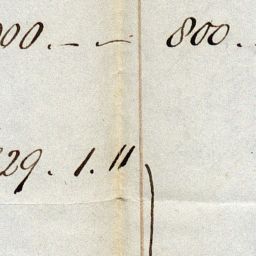 00. – – 800. .
29. 1. 11